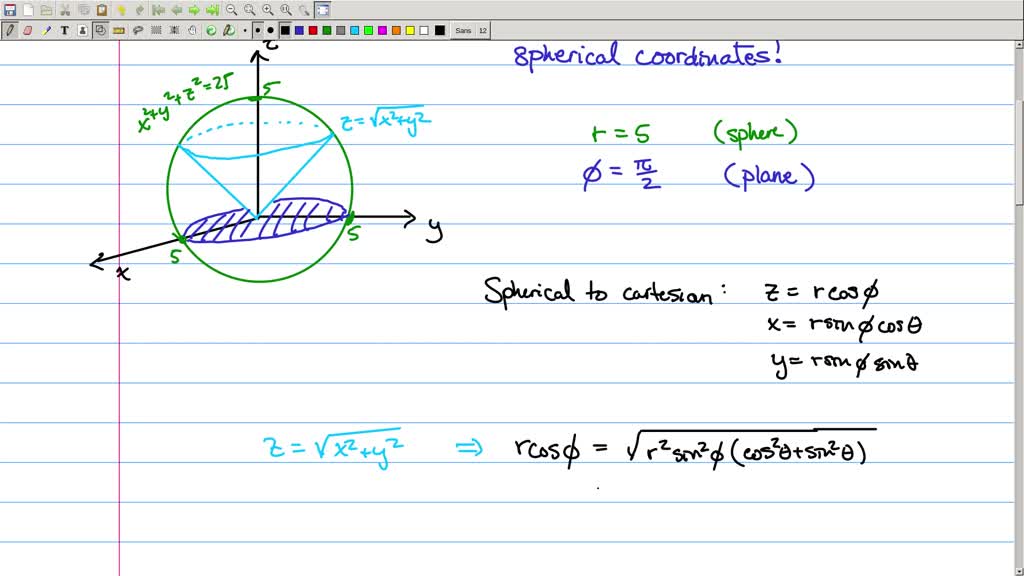 T
Sans 12
Spherical coordinates!
z
5
x²+y²+z²=25
z=√x²+y²
r = 5 (sphere)
ϕ = π/2 (plane)
y
5
5
x
Spherical to cartesian: z = rcosϕ
x= rsinϕcosθ
y= rsinϕsinθ
z = √x²+y² ⇒ rcosϕ = √r²sin²ϕ(cos²θ+sin²θ)